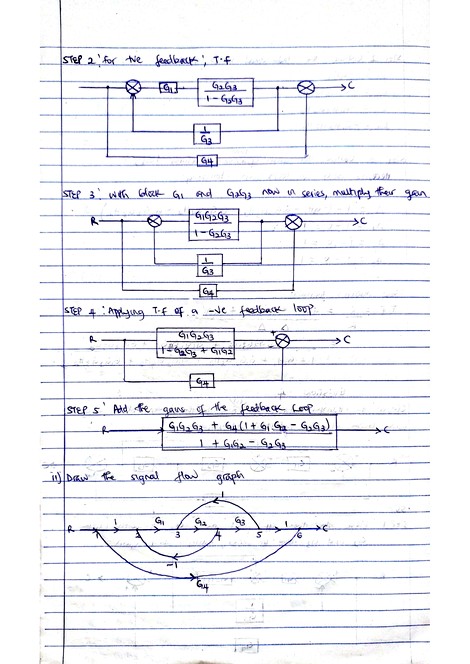 STEP 2: for +ve feedback, T.f
G1 G2G3
1 - G3G3
C
1
G3
G4
STEP 3: With block G1 and G2G3 now in series, multiply their gain
R G1G2G3
1 - G2G3
C
1
G3
G4
STEP 4: Applying T.f of a -ve feedback loop
R G1G2G3
1 - G2G3 + G1G2
+
-
C
G4
STEP 5: Add the gains of the feedback loop
R G1G2G3 + G4(1 + G1G2 - G2G3)
1 + G1G2 - G2G3
C
ii) Draw the signal flow graph
1
R 1 G1 G2 G3 1 C
1 2 3 4 5 6
-1
G4